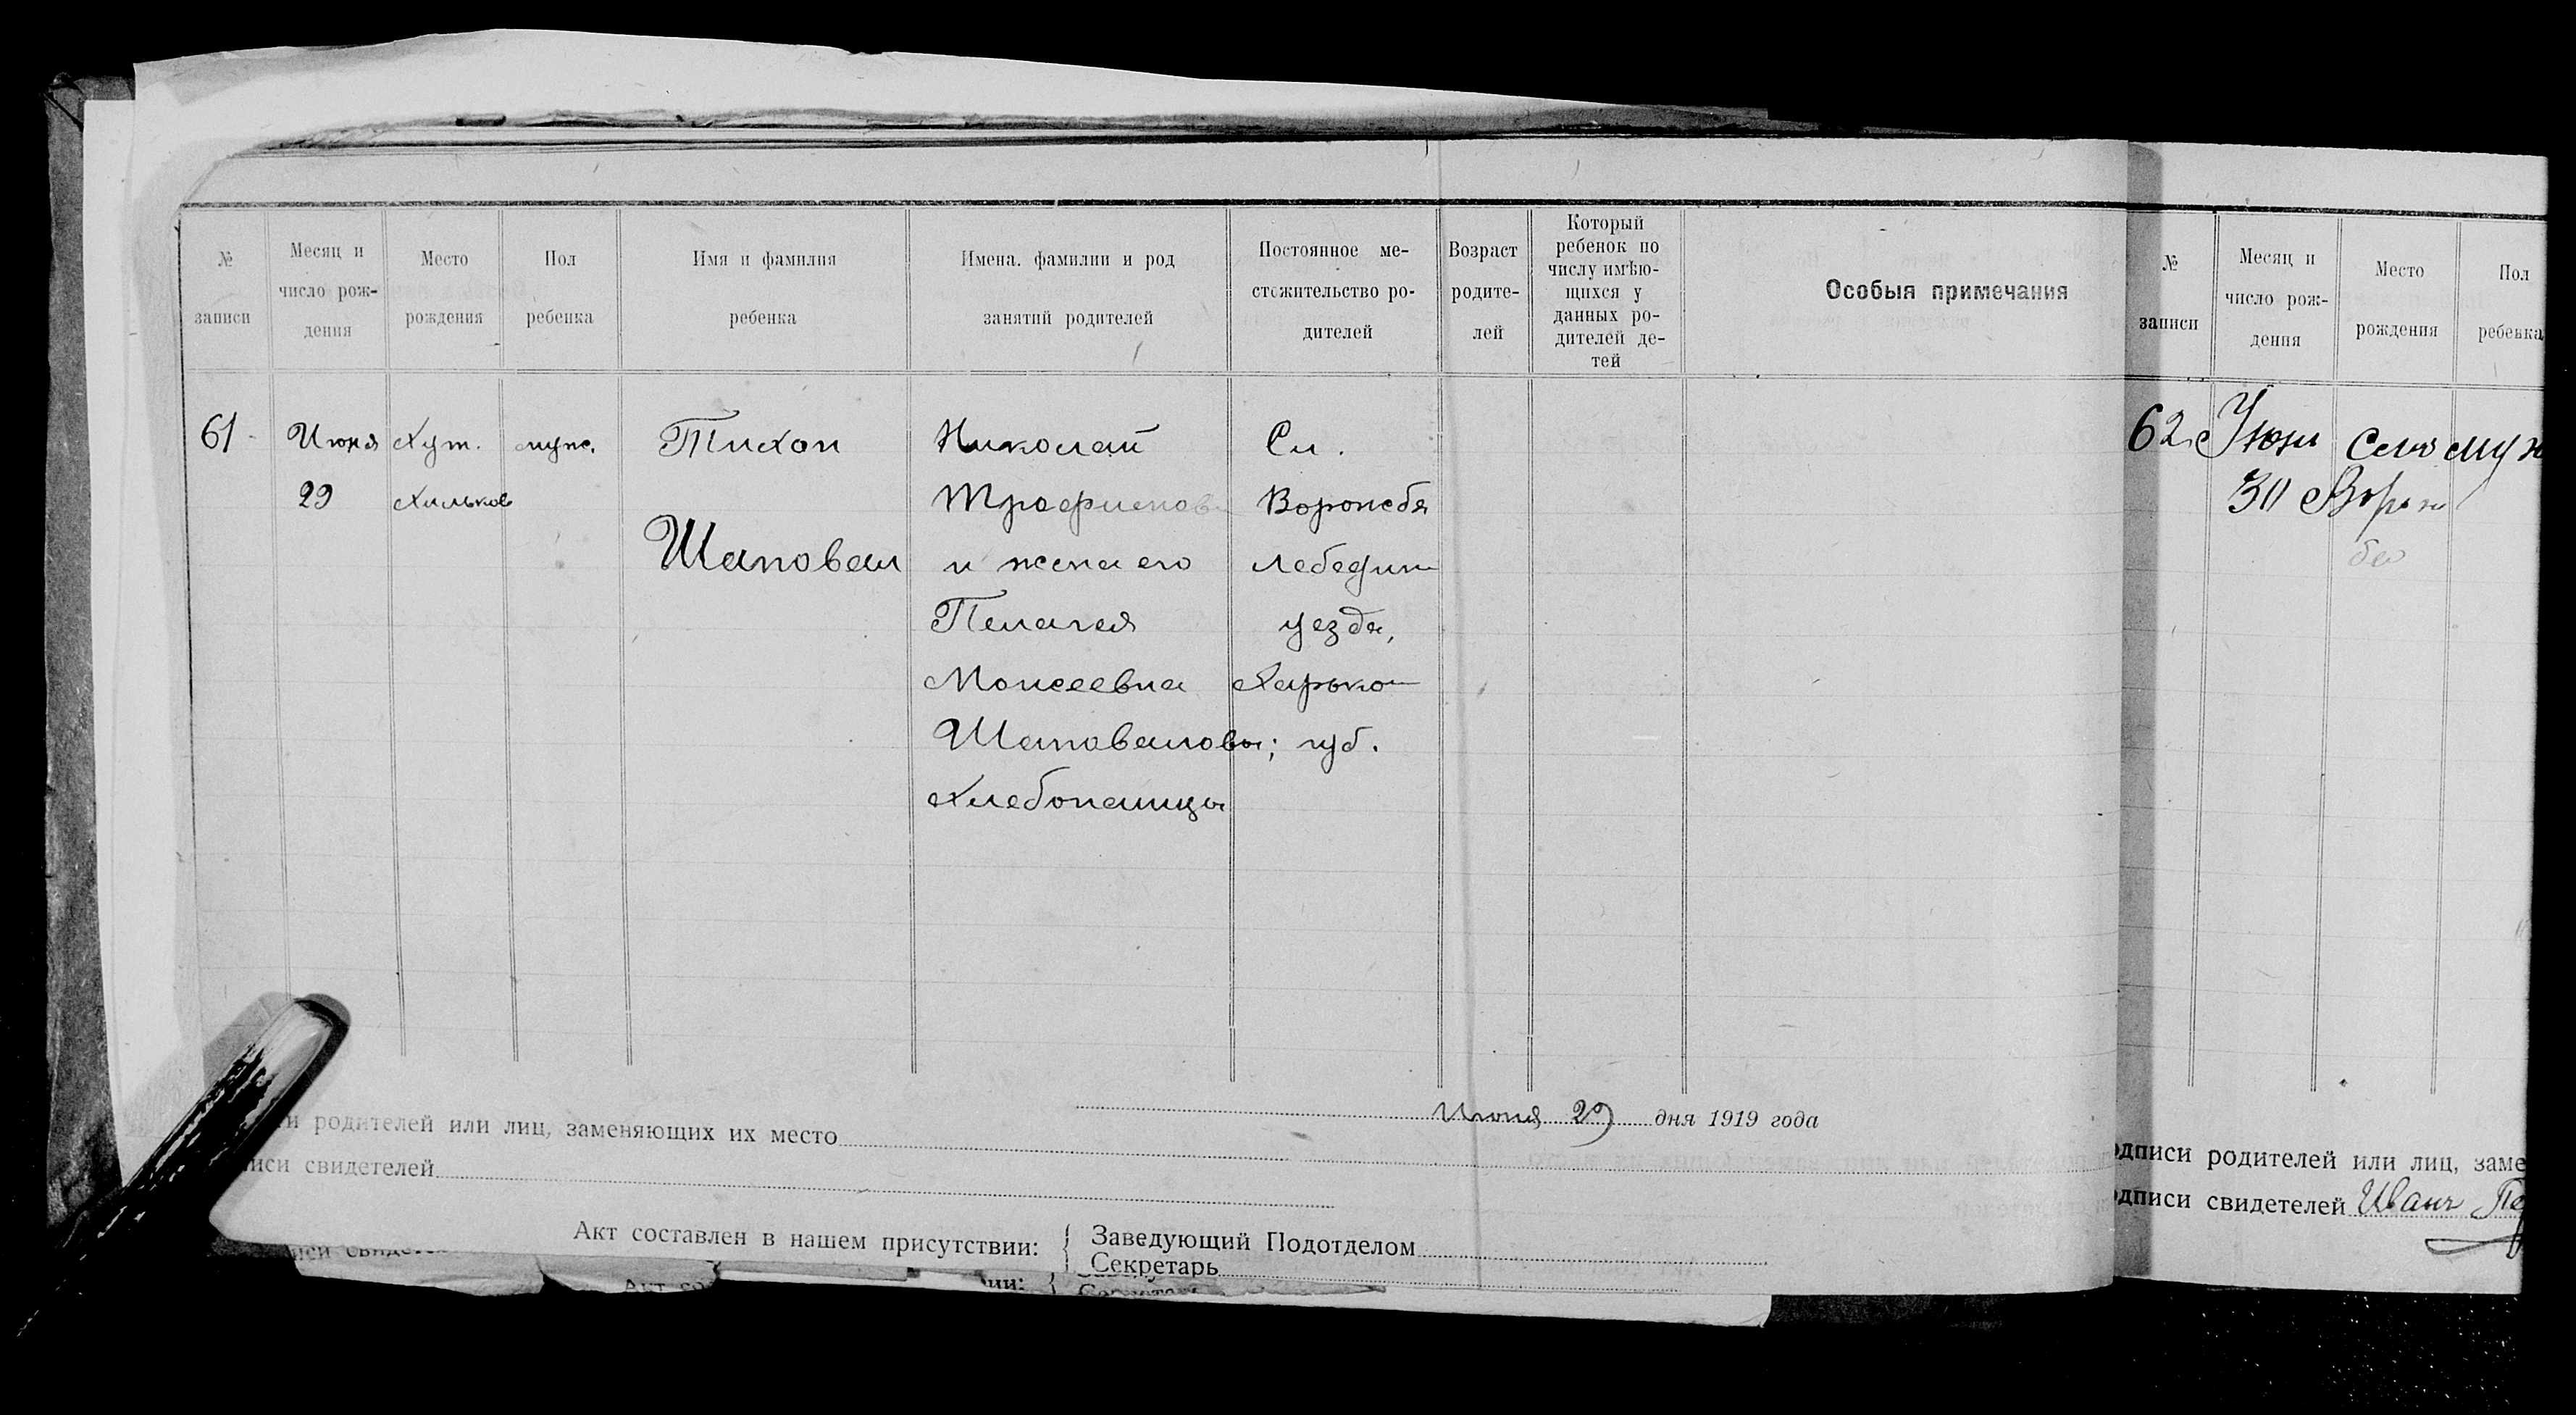 № записи
Месяц и число рождения
Место рождения
Пол ребенка
Имя и фамилия ребенка
Имена. фамилии и род занятий родителей
Постоянное местожительство родителей
Возраст родителей
Который ребенок по числу имѣющихся у данных родителей детей
Особыя примечания
61
Июня 29
Хут. Хильков
муж.
Тихон
Шаповал
Николай
Трофимов
и жена его
Пелагея
Моисеевна
Шаповаловы;
Хлебопашцы
Сл.
Ворожба
Лебедин
уезда,
Харько
губ.
Июня 29 дня 1919 года
и родителей или лиц, заменяющих их место
иси свидетелей
Акт составлен в нашем присутствии:
Заведующий Подотделом
Секретарь
№ записи
Месяц и число рождения
Место рождения
Пол ребенка
62
Июня 30
Село Ворож
ба
муж
одписи родителей или лиц, заме
одписи свидетелей Иванъ